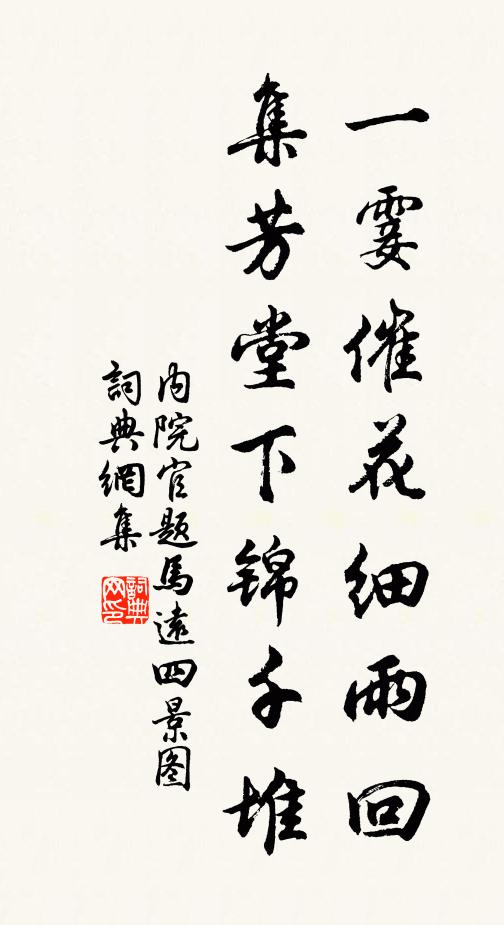 一霎催花細雨回
集芳堂下錦千堆
内院官題馬遠四景图
詞典網集
詞典网印